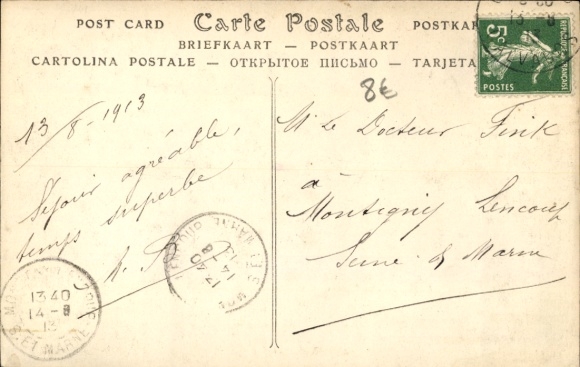 POST CARD Carte Postale POSTKAR
BRIEFKAART — POSTKAART
CARTOLINA POSTALE — ОТКРЫТОЕ ПИСЬМО — TARJETA
8€
5c
REPUBLIQUE FRANÇAISE
POSTES
13/8-1913
Séjour agréable,
temps superbe
A. B
M Le Docteur Finik
à
Montigny Lencoup
Seine & Marne
1340
14-8
13
ET MARNE
1340
14-8
13